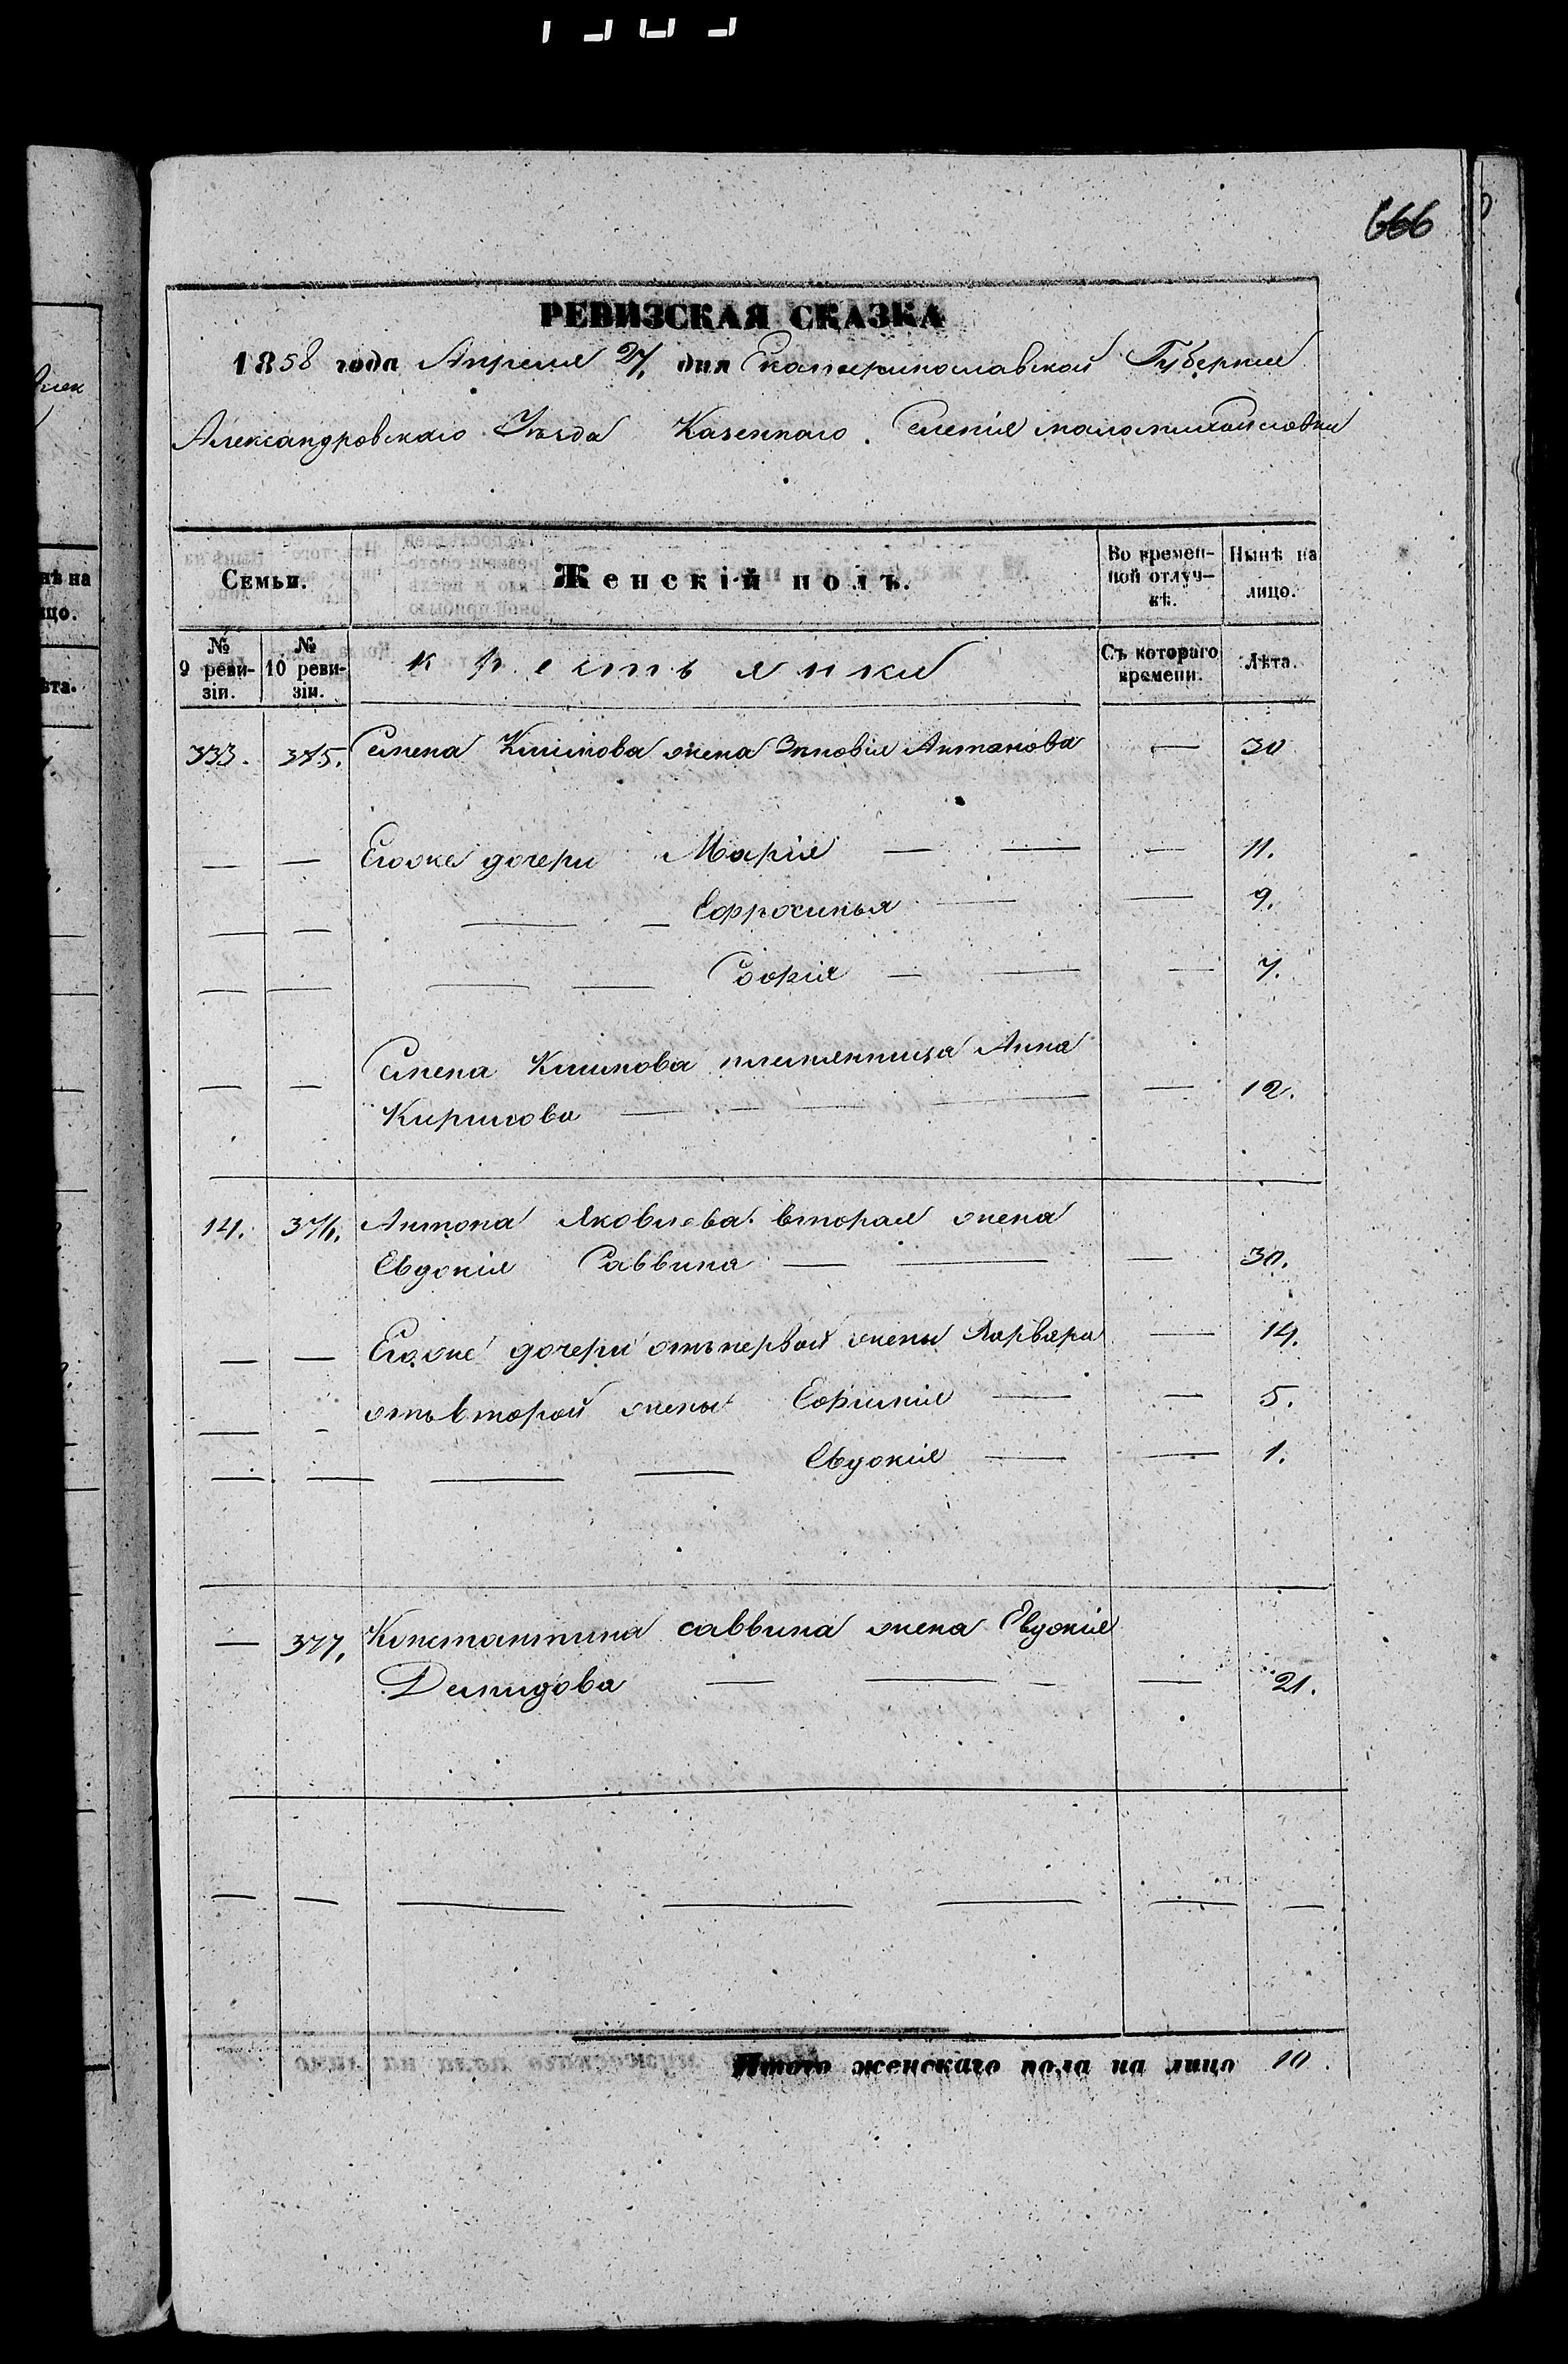 666
РЕВИЗСКАЯ СКАЗКА
1858 года Апреля 27, дня Екатеринославской Губернии
Александровскаго Уѣзда Казеннаго Селенія маломихайловки
Семьи. Женскій полъ. Во времен-ной отлуч-кѣ. Нынѣ на лицо.
№ 9 реви-зіи. № 10 реви-зіи. крестьянки Съ котораго времени. Лѣта.
333. 375. Семена Климова жена Зиновія Антонова — 30
— — Егоже дочери Марія — — — 11.
— — — — Ефросинья — — 9.
— — — — Софія — — — 7.
Семена Климова племянница Анна
— — Кирилова — — — — — 12.
14. 376. Антона Яковлева вторая жена
Евдокія Саввина — — — 30.
— — Егоже дочери отъ первой жены Варвара — 14.
— - отъ второй жены Ефимія — — 5.
— — — — Евдокія — — 1.
— 377. Константина саввина жена Евдокія
Демидова — — — — 21.
— — — — — — —
Итого женскаго пола на лицо 10.